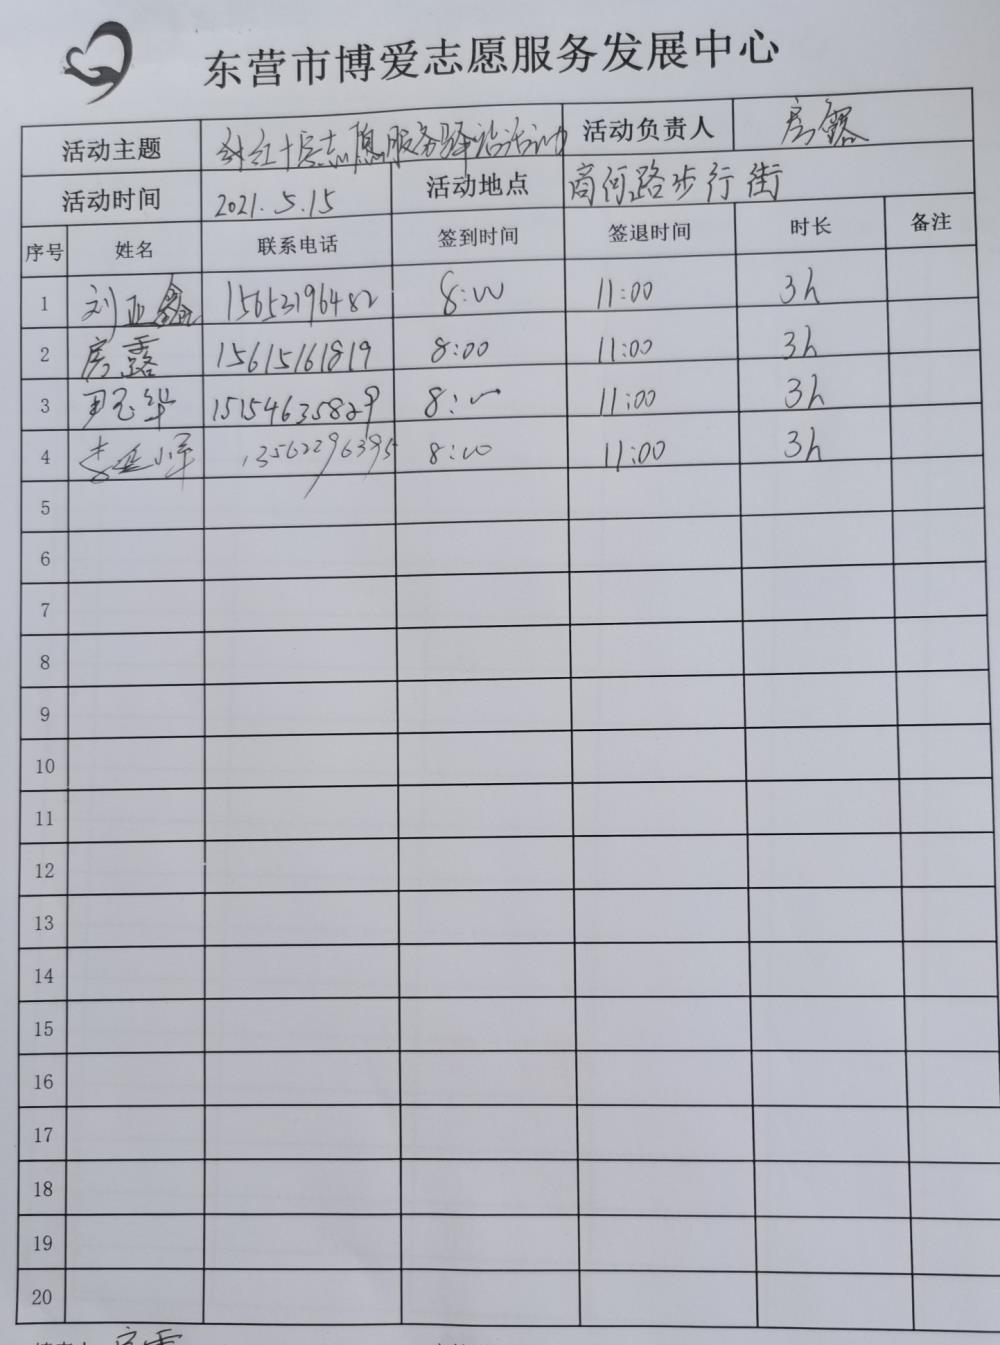 东营市博爱志愿服务发展中心
活动主题 红十字志愿服务驿站活动 活动负责人 房鑫
活动时间 2021.5.15 活动地点 商河路步行街
序号 姓名 联系电话 签到时间 签退时间 时长 备注
1 刘亚鑫 15653196482 8:00 11:00 3h
2 房露 15615161819 8:00 11:00 3h
3 15154635829 8:00 11:00 3h
4 13562296395 8:00 11:00 3h
5
6
7
8
9
10
11
12
13
14
15
16
17
18
19
20